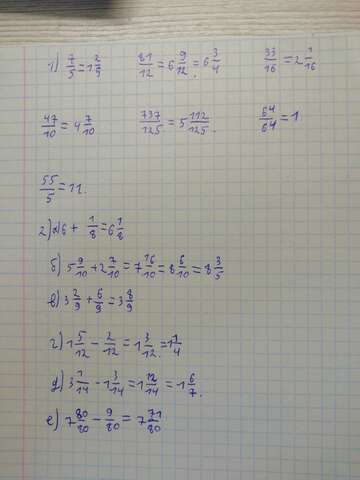 1) 7/5 = 1 2/5 81/12 = 6 9/12 = 6 3/4 33/16 = 2 1/16
47/10 = 4 7/10 737/125 = 5 112/125. 64/64 = 1.
55/5 = 11.
2) а) 6 + 1/8 = 6 1/8
б) 5 9/10 + 2 7/10 = 7 16/10 = 8 6/10 = 8 3/5
в) 3 2/9 + 6/9 = 3 8/9
г) 1 5/12 - 2/12 = 1 3/12. = 1 1/4
д) 3 1/14 - 1 3/14 = 1 12/14 = 1 6/7.
е) 7 80/80 - 9/80 = 7 71/80